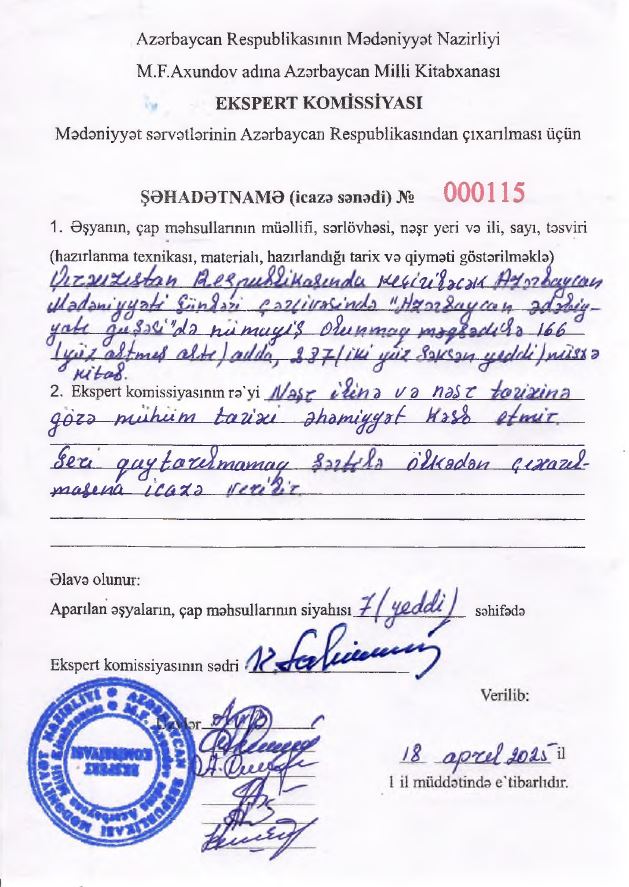 Azərbaycan Respublikasının Mədəniyyət Nazirliyi
M.F.Axundov adına Azərbaycan Milli Kitabxanası
EKSPERT KOMİSSİYASI
Mədəniyyət sərvətlərinin Azərbaycan Respublikasından çıxarılması üçün
ŞƏHADƏTNAMƏ (icazə sənədi) № 000115
1. Əşyanın, çap məhsullarının müəllifi, sərlövhəsi, nəşr yeri və ili, sayı, təsviri
(hazırlanma texnikası, materialı, hazırlandığı tarix və qiyməti göstərilməklə)
Respublikasında keçiriləcək Azərbaycan
Mədəniyyəti Günləri çərçivəsində "Azərbaycan ədəbiy-
yatı guşəsi"də nümayiş olunmaq məqsədilə 166
(yüz altmış altı) adda, 287 (iki yüz səksən yeddi) nüsxə
kitab.
2. Ekspert komissiyasının rə'yi Nəşr ilinə və nəşr tarixinə
görə mühüm tarixi əhəmiyyət kəsb etmir.
Geri qaytarılmamaq şərtilə ölkədən çıxarıl-
masına icazə verilir.
Əlavə olunur:
Aparılan əşyaların, çap məhsullarının siyahısı 7 (yeddi) səhifədə
Ekspert komissiyasının sədri
Verilib:
18 aprel 2025 il
1 il müddətində e'tibarlıdır.
AZƏRBAYCAN RESPUBLİKASI MƏDƏNİYYƏT NAZİRLİYİ
M.F. Axundov adına Azərbaycan Milli Kitabxanası
EKSPERT
KOMİSSİYASI